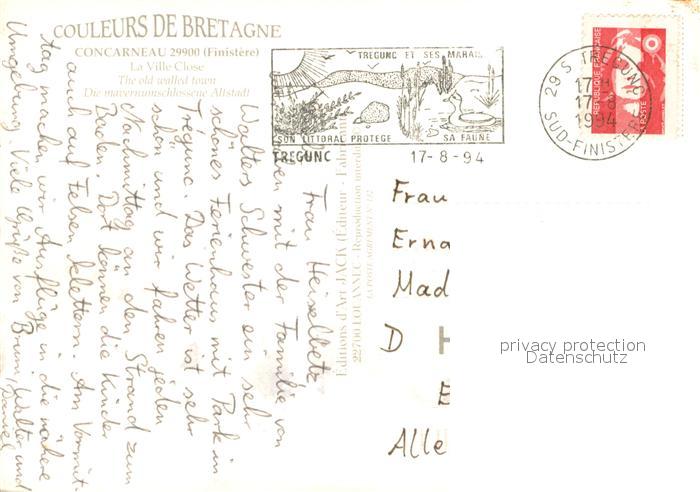 COULEURS DE BRETAGNE
CONCARNEAU 29900 (Finistère)
La Ville Close
The old walled town
Die mavernumschlossene Altstadt
TREGUNC ET SES MARAIS
SON LITTORAL PROTEGE SA FAUNE
TREGUNC 17-8-94
29 S TREGUNC
17-8
1994
SUD-FINISTERE
REPUBLIQUE FRANÇAISE
LA POSTE
Frau Heiselbetz
haben mit der Familie von
Walters Schwester ein sehr
schönes Ferienhaus mit Park in
Tregunc. Das Wetter ist sehr
schön und wir fahren jeden
Nachmittag an den Strand zum
Baden. Dort können die Kinder
auch auf Felsen klettern. Am Vormit-
tag machen wir Ausflüge in die nähere
Umgebung. Viele Grüße von Bruni, Walter und
Daniel
Editions d'Art JACK (Éditeur - Fabricant)
22700 LOUANNEC - Reproduction interdite
LA POSTE AGREMENT N°
Frau
Erna
Mad
D H
E
Alle
privacy protection
Datenschutz